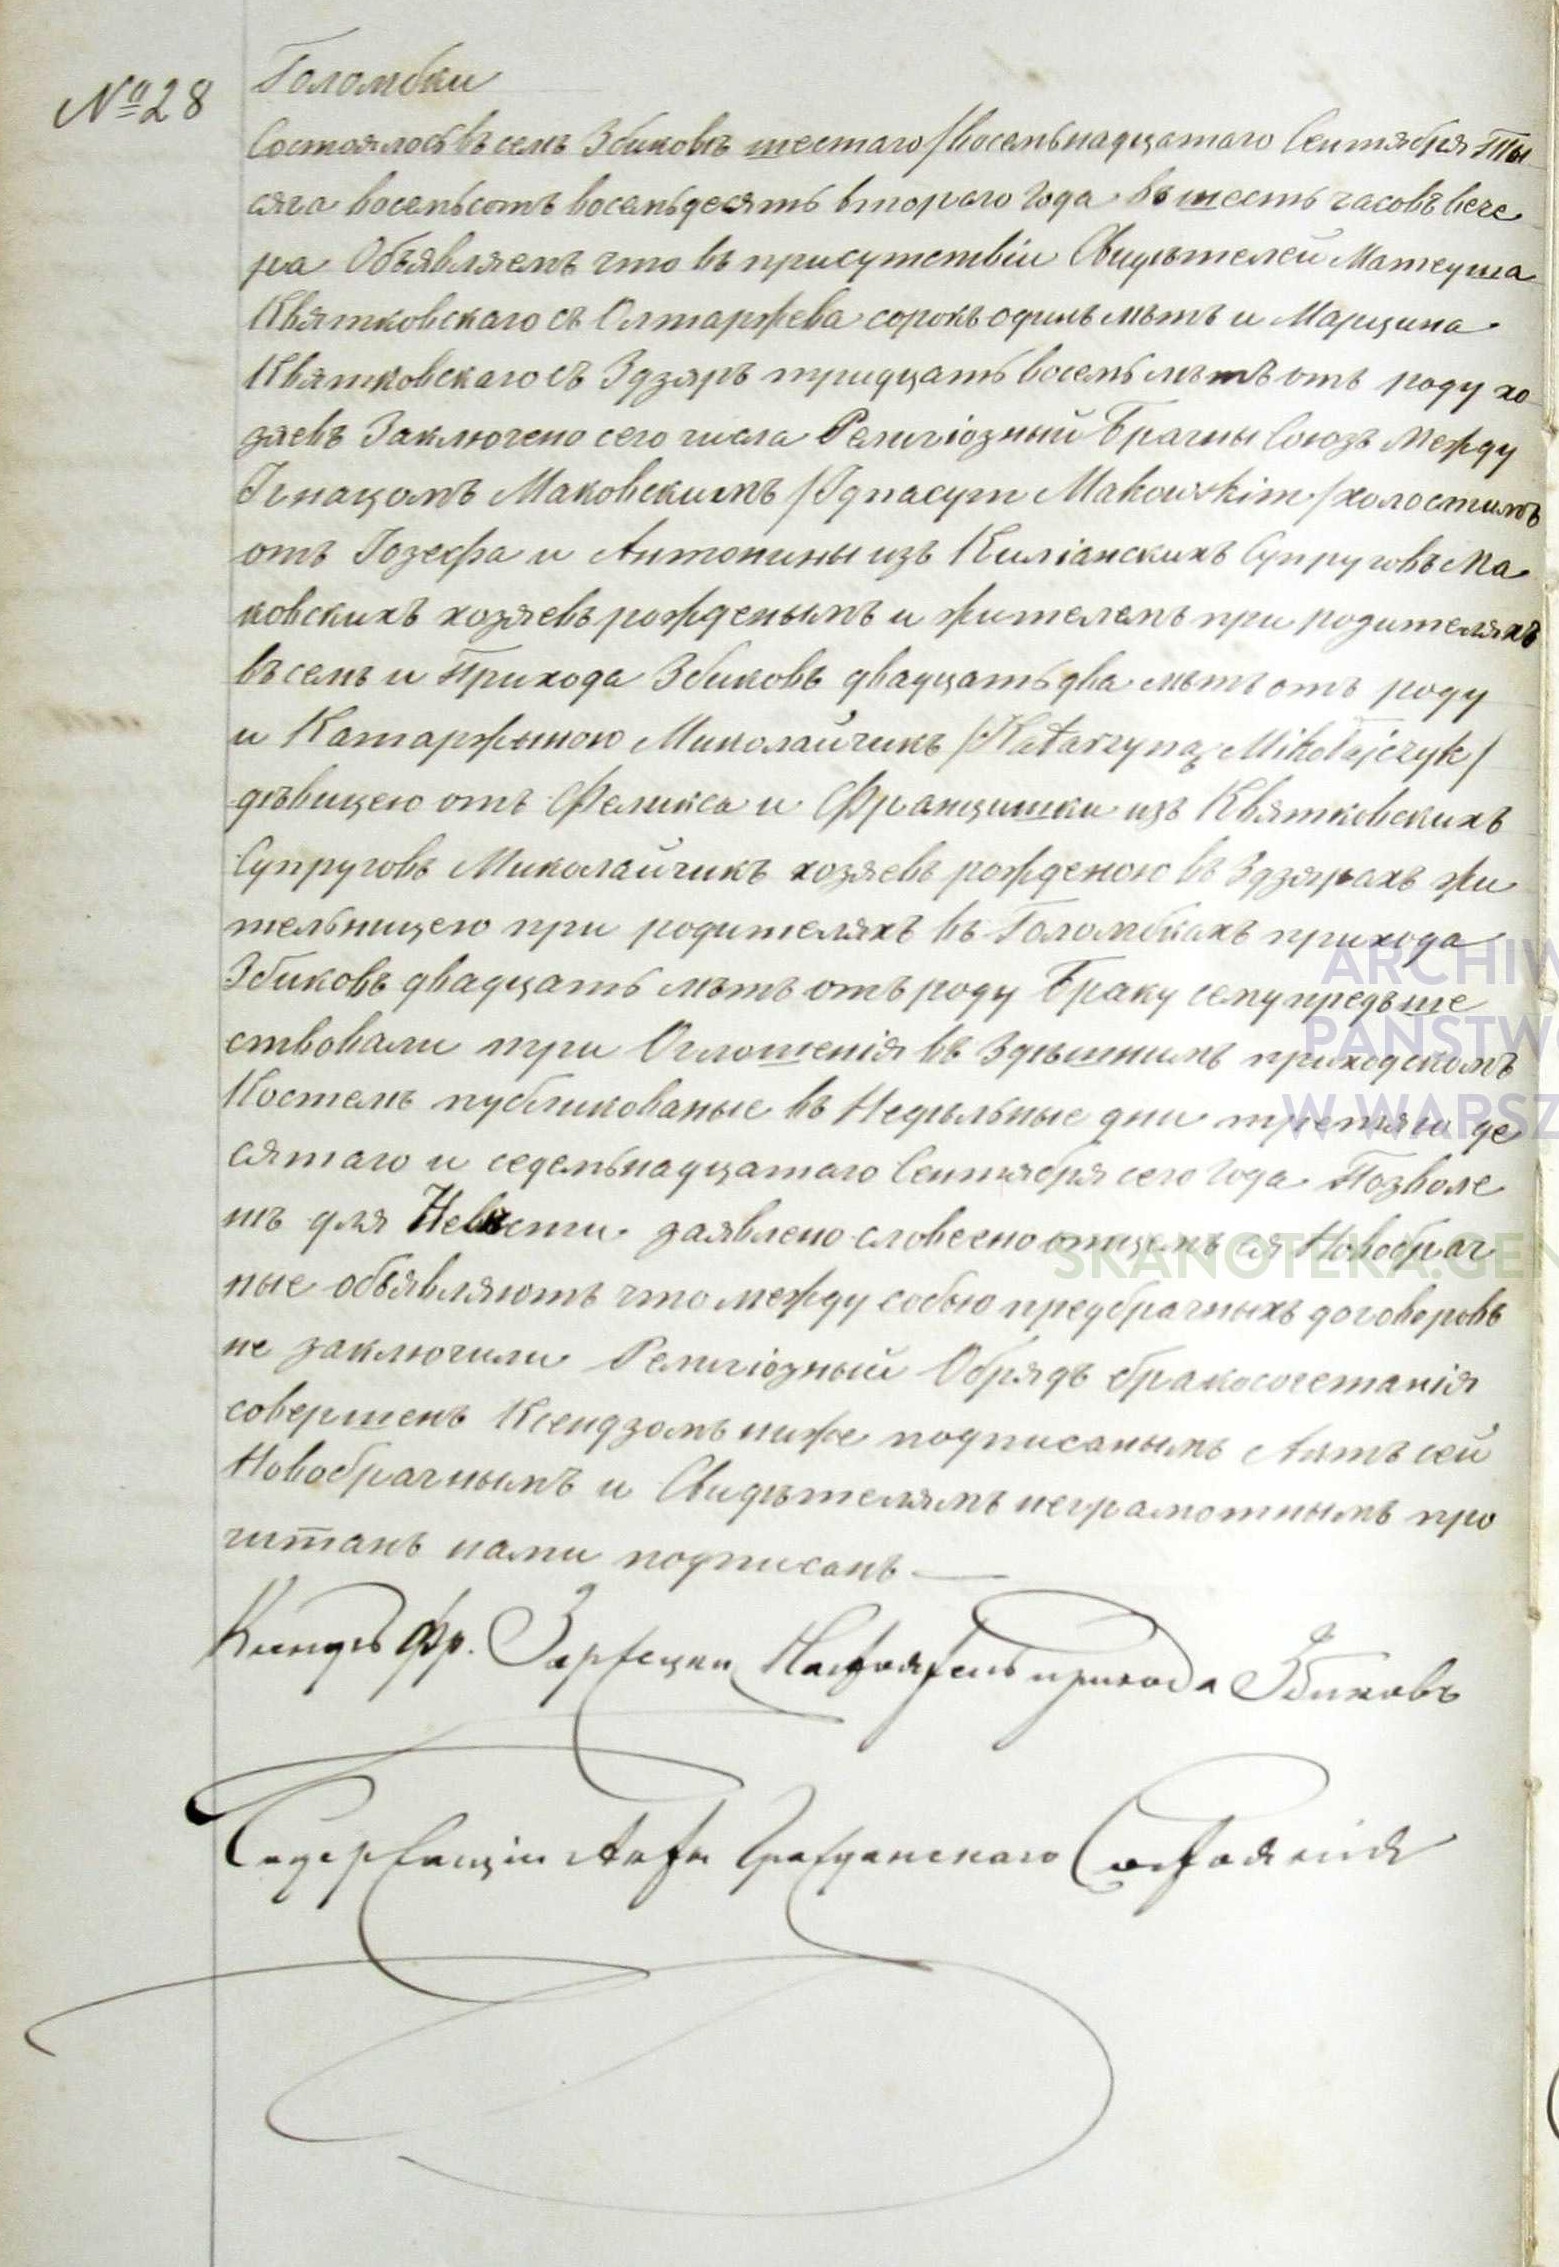 № 28
Голомбки
Состоялось въ семъ Збиковѣ шестаго/восемьнадцатаго Сентября Ты
сяча восемьсотъ восемьдесятъ второго Года въ шесть часовъ вече
ра Объявляемъ что въ присутствіи Свидѣтелей Матеуша
Квятковскаго съ Олтаржева сорокъ одинъ лѣтъ и Марцина
Квятковскаго съ Здзяръ тридцать восемь лѣтъ отъ роду хо
зяевъ Заключено сего числа Религіозный Брачны Союзъ между
Игнацомъ Маковскимъ /Ignacym Makowskim/ холостымъ
отъ Іозефа и Антонины изъ Киліанскихъ Супруговъ Ма
ковскихъ хозяевъ рожденымъ и жителемъ при родителяхъ
въ семъ и Прихода Збиковъ двадцать два лѣтъ отъ роду
и Катаржыною Миколайчикъ /Katarzyną Mikołajczyk/
дѣвицею отъ Феликса и Францишки изъ Квятковскихъ
Супруговъ Миколайчикъ хозяевъ рожденою въ Здзярахъ жи
тельницею при родителяхъ въ Голомбкахъ прихода
Збиковъ двадцать лѣтъ отъ роду Браку сему предъше
ствовали три Оглошенія въ Здѣшнимъ приходскомъ
Костелѣ публикованые въ Недѣльные дни третяго де
сятаго и седемьнадцатаго Сентября сего Года Позволе
нъ для Невѣсти заявлено словесно отцемъ ея Новобрач
ные объявляютъ что между собою предбрачныхъ договоровъ
не заключили Религіозный Обрядъ бракосочетанія
совершенъ Ксендзомъ ниже подписанымъ Актъ сей
Новобрачнымъ и Свидѣтелямъ неграмотнымъ про
читанъ нами подписанъ —
Ксендзъ Фр. Зарѣцки Настоятель прихода Збиковъ
Содержащій Акты Гражданскаго Состоянія
ARCHIW
PAŃSTWO
W WARSZ
SKANOTEKA.GEN